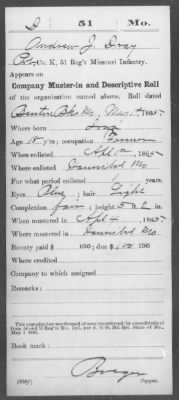 D | 51 | Mo.
Andrew J. Gray
Pvt, Co. K, 51 Reg't Missouri Infantry.
Appears on
Company Muster-in and Descriptive Roll
of the organization named above. Roll dated
Benton Bks Mo, 1865.
Where born Iowa
Age 18 y'rs; occupation Farmer
When enlisted Apl 1865
Where enlisted Hannibal Mo
For what period enlisted 1 years.
Eyes Blue; hair Light
Complexion Fair; height 5 ft. 2 in.
When mustered in Apl 4, 1865.
Where mustered in Hannibal Mo
Bounty paid $ 100; due $ 100
Where credited
Company to which assigned
Remarks:
Book mark:
(339g)
Copyist.